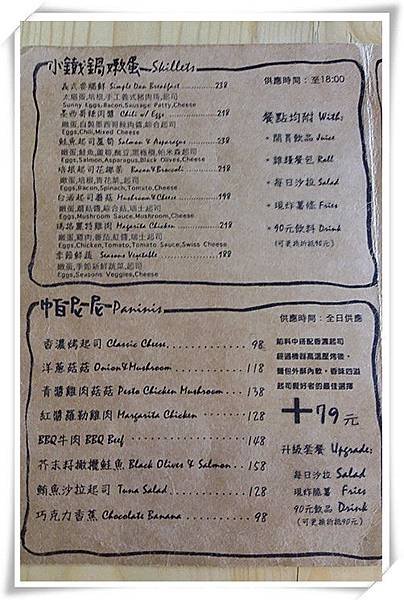 小鐵鍋燉蛋 Skillets
供應時間：至18:00
義式香腸鮮 Simple Don Breakfast 238
太陽蛋,培根,手工義式豬肉腸,起司
Sunny Eggs,Bacon,Sausage Patty,Cheese
墨西哥辣肉醬 Chili w/ Eggs 218
嫩蛋,自製墨西哥辣肉醬,綜合起司
Eggs,Chili,Mixed Cheese
鮭魚起司蘆筍 Salmon & Asparagus 238
Eggs,Salmon,Asparagus,Black Olives,Cheese
培根起司花椰菜 Bacon & Broccoli 218
嫩蛋,培根,青花菜,起司
Eggs,Bacon,Spinach,Tomato,Cheese
白酒起司蘑菇 Mushroom & Cheese 198
嫩蛋,蘑菇醬,綜合菇,瑞士起司
Eggs,Mushroom Sauce,Mushroom,Cheese
瑪格麗特雞肉 Magarita Chicken 218
嫩蛋,雞肉,番茄,紅醬,瑞士起司
Eggs,Chicken,Tomato,Tomato Sauce,Swiss Cheese
季節鮮蔬 Seasons Vegetable 188
嫩蛋,季節新鮮蔬菜,起司
Eggs,Seasons Veggies,Cheese
餐點均附 With:
* 開胃飲品 Juice
* 雜糧餐包 Roll
* 每日沙拉 Salad
* 現炸薯條 Fries
* 90元飲料 Drink
(可更換折抵90元)
帕尼尼 Paninis
供應時間：全日供應
香濃烤起司 Classic Cheese 98
洋蔥菇菇 Onion & Mushroom 118
青醬雞肉菇菇 Pesto Chicken Mushroom 138
紅醬羅勒雞肉 Margarita Chicken 128
BBQ牛肉 BBQ Beef 148
芥末籽橄欖鮭魚 Black Olives & Salmon 158
鮪魚沙拉起司 Tuna Salad 128
巧克力香蕉 Chocolate Banana 98
餡料中搭配香濃起司
經過機器高溫壓烤後，
麵包外酥內軟，香味四溢
起司餐好者的最佳選擇
+79元
升級套餐 Upgrade:
每日沙拉 Salad
現炸脆薯 Fries
90元飲品 Drink
(可更換折抵90元)